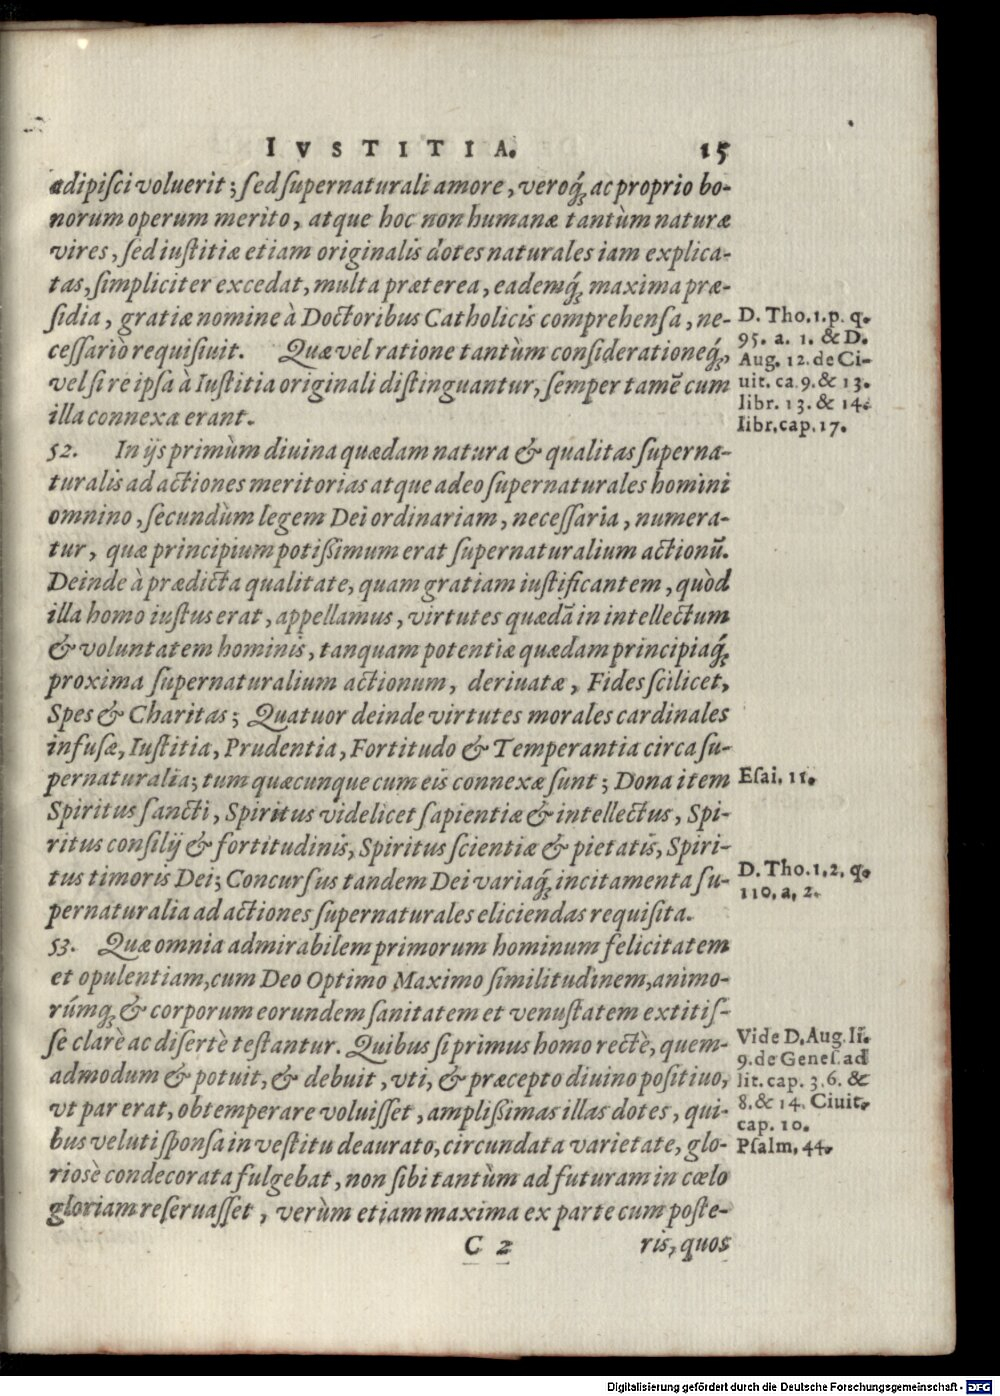 IVSTITIA. 15
adipisci voluerit; sed supernaturali amore, veroq́; ac proprio bo-
norum operum merito, atque hoc non humanæ tantùm naturæ
vires, sed iustitiæ etiam originalis dotes naturales iam explica-
tas, simpliciter excedat, multa præterea, eademq́; maxima præ-
sidia, gratiæ nomine à Doctoribus Catholicis comprehensa, ne-
cessariò requisiuit. Quæ vel ratione tantùm considerationeq́;
vel si re ipsa à Iustitia originali distinguantur, semper tamē cum
illa connexa erant.
D. Tho. 1. p. q.
95. a. 1. & D.
Aug. 12. de Ci-
uit. ca. 9. & 13.
libr. 13. & 14.
libr. cap. 17.
52. In ijs primùm diuina quædam natura & qualitas superna-
turalis ad actiones meritorias atque adeo supernaturales homini
omnino, secundùm legem Dei ordinariam, necessaria, numera-
tur, quæ principium potißimum erat supernaturalium actionū.
Deinde à prædicta qualitate, quam gratiam iustificantem, quòd
illa homo iustus erat, appellamus, virtutes quædā in intellectum
& voluntatem hominis, tanquam potentiæ quædam principiaq́;
proxima supernaturalium actionum, deriuatæ, Fides scilicet,
Spes & Charitas; Quatuor deinde virtutes morales cardinales
infusæ, Iustitia, Prudentia, Fortitudo & Temperantia circa su-
pernaturalia; tum quæcunque cum eis connexæ sunt; Dona item
Spiritus sancti, Spiritus videlicet sapientiæ & intellectus, Spi-
ritus consilij & fortitudinis, Spiritus scientiæ & pietatis, Spiri-
tus timoris Dei; Concursus tandem Dei variaq́; incitamenta su-
pernaturalia ad actiones supernaturales eliciendas requisita.
Esai. 11.
D. Tho. 1. 2. q.
110. a. 2.
53. Quæ omnia admirabilem primorum hominum felicitatem
et opulentiam, cum Deo Optimo Maximo similitudinem, animo-
rúmq; & corporum eorundem sanitatem et venustatem extitis-
se clarè ac disertè testantur. Quibus si primus homo rectè, quem-
admodum & potuit, & debuit, vti, & præcepto diuino positiuo,
vt par erat, obtemperare voluisset, amplißimas illas dotes, qui-
bus veluti sponsa in vestitu deaurato, circundata varietate, glo-
riosè condecorata fulgebat, non sibi tantùm ad futuram in cœlo
gloriam reseruasset, verùm etiam maxima ex parte cum poste-
Vide D. Aug. li.
9. de Genes. ad
lit. cap. 3. 6. &
8. & 14. Ciuit.
cap. 10.
Psalm. 44.
C 2 ris, quos
Digitalisierung gefördert durch die Deutsche Forschungsgemeinschaft - DFG